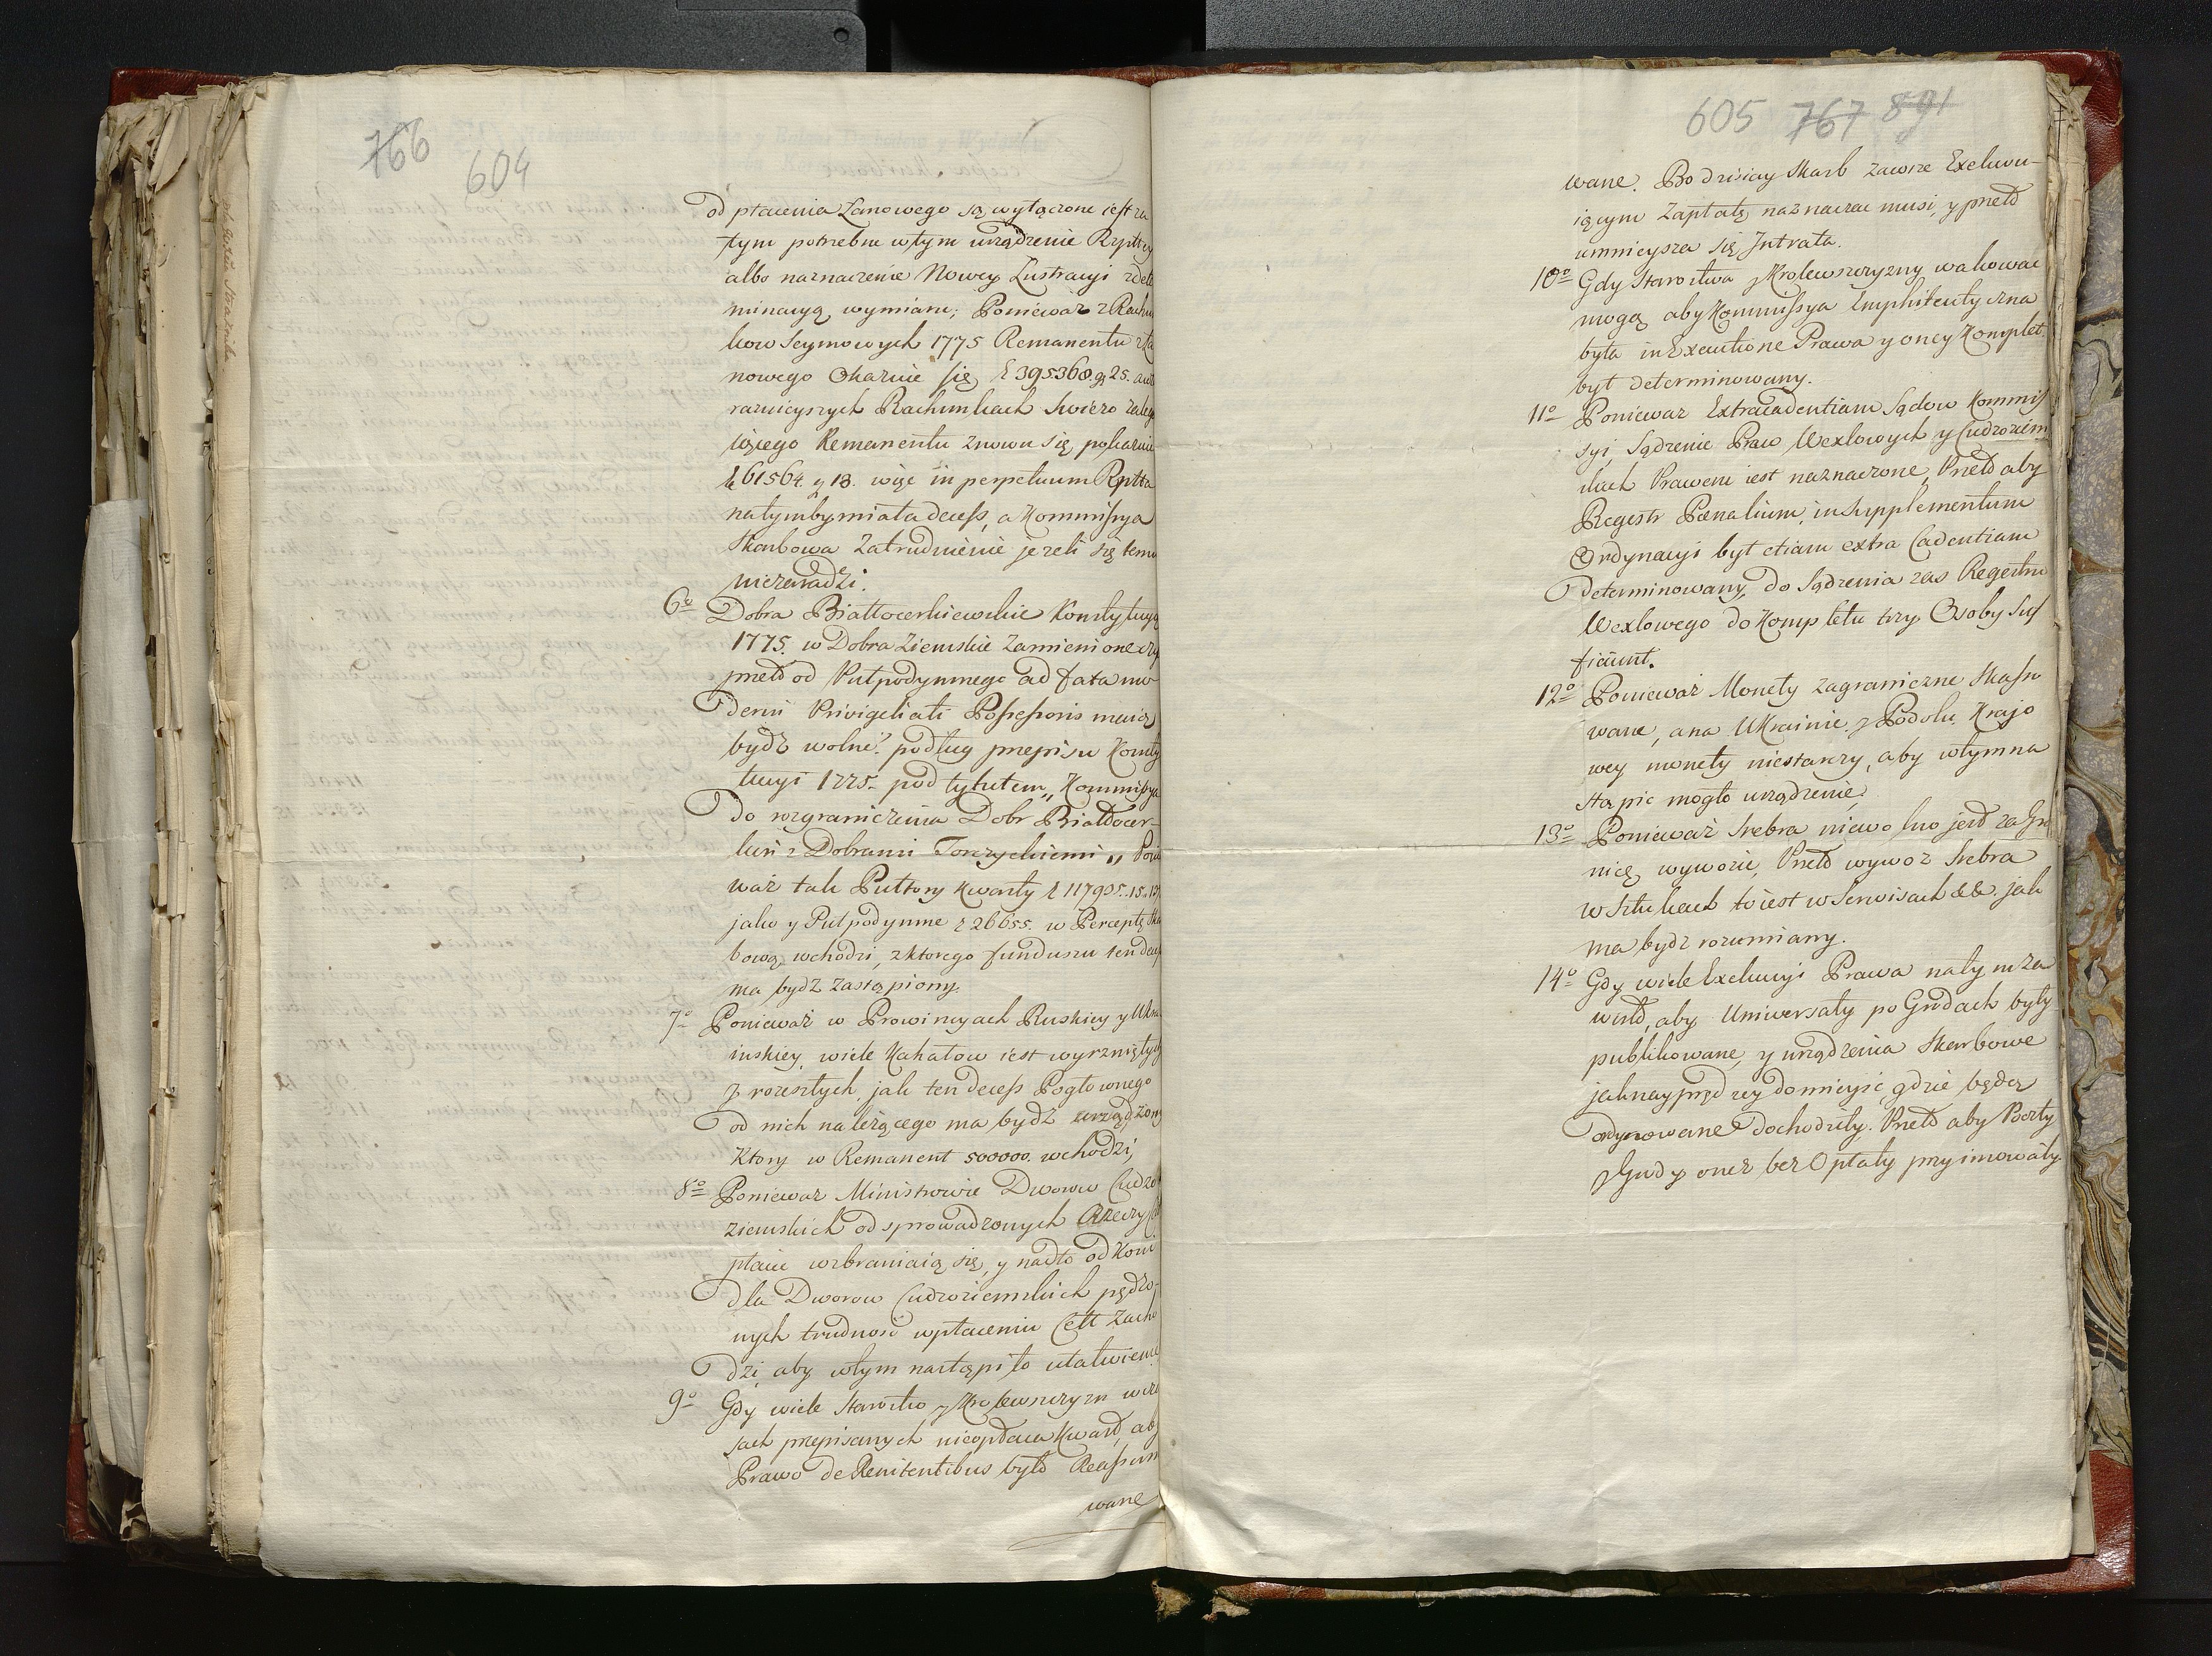 766
604
od płacenia Łanowego są wyłączone iest za
tym potrzebne w tym urządzenie Rzpttey
albo naznaczenie Nowey Lustracyi z dete
minacyą wymiaru; Ponieważ z Rachu
kow Seymowych 1775 Remanentu z Ła
nowego Okazuie się, ł 395368. g 25. a w te
raznieyszych Rachunkach swiezo zaleg
iącego Remanentu znowu się pokazuie
ł 61564. g 18. więc in perpetuum Rzptta
natymby miała decess, a Kommissya
Skarbowa Zatrudnienie jezeli się temu
niezaradzi.
6to Dobra Białłocerkiewskie Konstytucyą
1775. w Dobra Ziemskie zamienione czy
przetd od Pułpodymnego ad fata mo-
derni Privigeliati Possessoris maią
bydź wolne? podług przepisu Konsty
tucyi 1775. pod tytułem „ Kommissya
do rozgraniczenia Dobr Białłocer-
kwi z Dobrami Tonzyckiemi „ Ponie
waż tak Pułtory Kwarty ł 117905.15.13
jako y Pułpodymne ł 26655. w Perceptę Ska
bową wchodzi, z ktorego funduszu ten dec
ma bydź zastąpiony.
7o Ponieważ w Prowincyach Ruskiey y Ukra
inskiey, wiele Kahałow iest wyrzniętych
y rozeszłych, jak ten decess Pogłownego
od nich nalezącego ma bydź urządzony
Ktory w Remanent 500000. wchodzi,
8o Ponieważ Ministrowie Dworow Cudzo
ziemskich od sprowadzonych Rzeczy Ce
płacic wzbraniaią się, y nadto od Koni
dla Dworow Cudzoziemskich pędzo-
nych trudnosc w płaceniu Cełł zacho
dzi, aby w tym nastąpiło ułatwienie
9o Gdy wiele Starostw y Krolewszczyzn w cza
sach przepisanych nieopłaca Kwart, aby
Prawo de Renitentibus było Reassum
wane
605 767 891
wane. Bo dzisiay Skarb zawsze Exekwu-
iącym Zapłatę naznaczac musi, y przetd
umnieysza się Intrata.
10o Gdy Starostwa y Krolewszczyzny wakowac
mogą aby Kommissya Emphiteutyczna
była in Executione Prawa y oney Komplet
był determinowany.
11o Ponieważ Extracadentiam Sądow Kommis
syi, Sądzenie Praw Wexlowych y Cudzoziem
skich Prawem iest naznaczone, Przetd aby
Regestr Pœnalium, in Supplementum
Ordynacyi był etiam extra Cadentiam
determinowany, do Sądzenia zas Regestru
Wexlowego do Kompletu trzy Osoby suf
ficiunt.
12o Ponieważ Monety zagraniczne skasso
wane, a na Ukrainie y Podolu Krajo
wey monety niestarczy, aby w tym na
stąpic mogło urządzenie,
13o Ponieważ Srebra niewolno jest za Gra
nicę wywozic, Przetd wywoz Srebra
w Sztukach to iest w Serwisach &&. jak
ma bydz rozumiany.
14o Gdy wiele Exekucyi Prawa na tym za
wisło, aby Uniwersały po Grodach były
publikowane, y urządzenia Skarbowe
jaknayprędzey do mieysc, gdzie będą
ordynowane dochodziły. Przetd aby Poczty
y Grody onez bez Opłaty przyimowały.